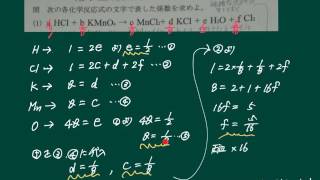 問 次の各化学反応式の文字で表した係数を求めよ。
(1) a HCl + b KMnO₄ → c MnCl₂ + d KCl + e H₂O + f Cl₂
H → 1 = 2e e = 1/2
Cl → 1 = 2c + d + 2f
K → b = d
Mn → b = c
O → 4b = e 4b = 1/2
b = 1/8
に代入
d = 1/8 , c = 1/8
1 = 2 × 1/8 + 1/8 + 2f
8 = 2 + 1 + 16f
16f = 5
f = 5/16
× 16